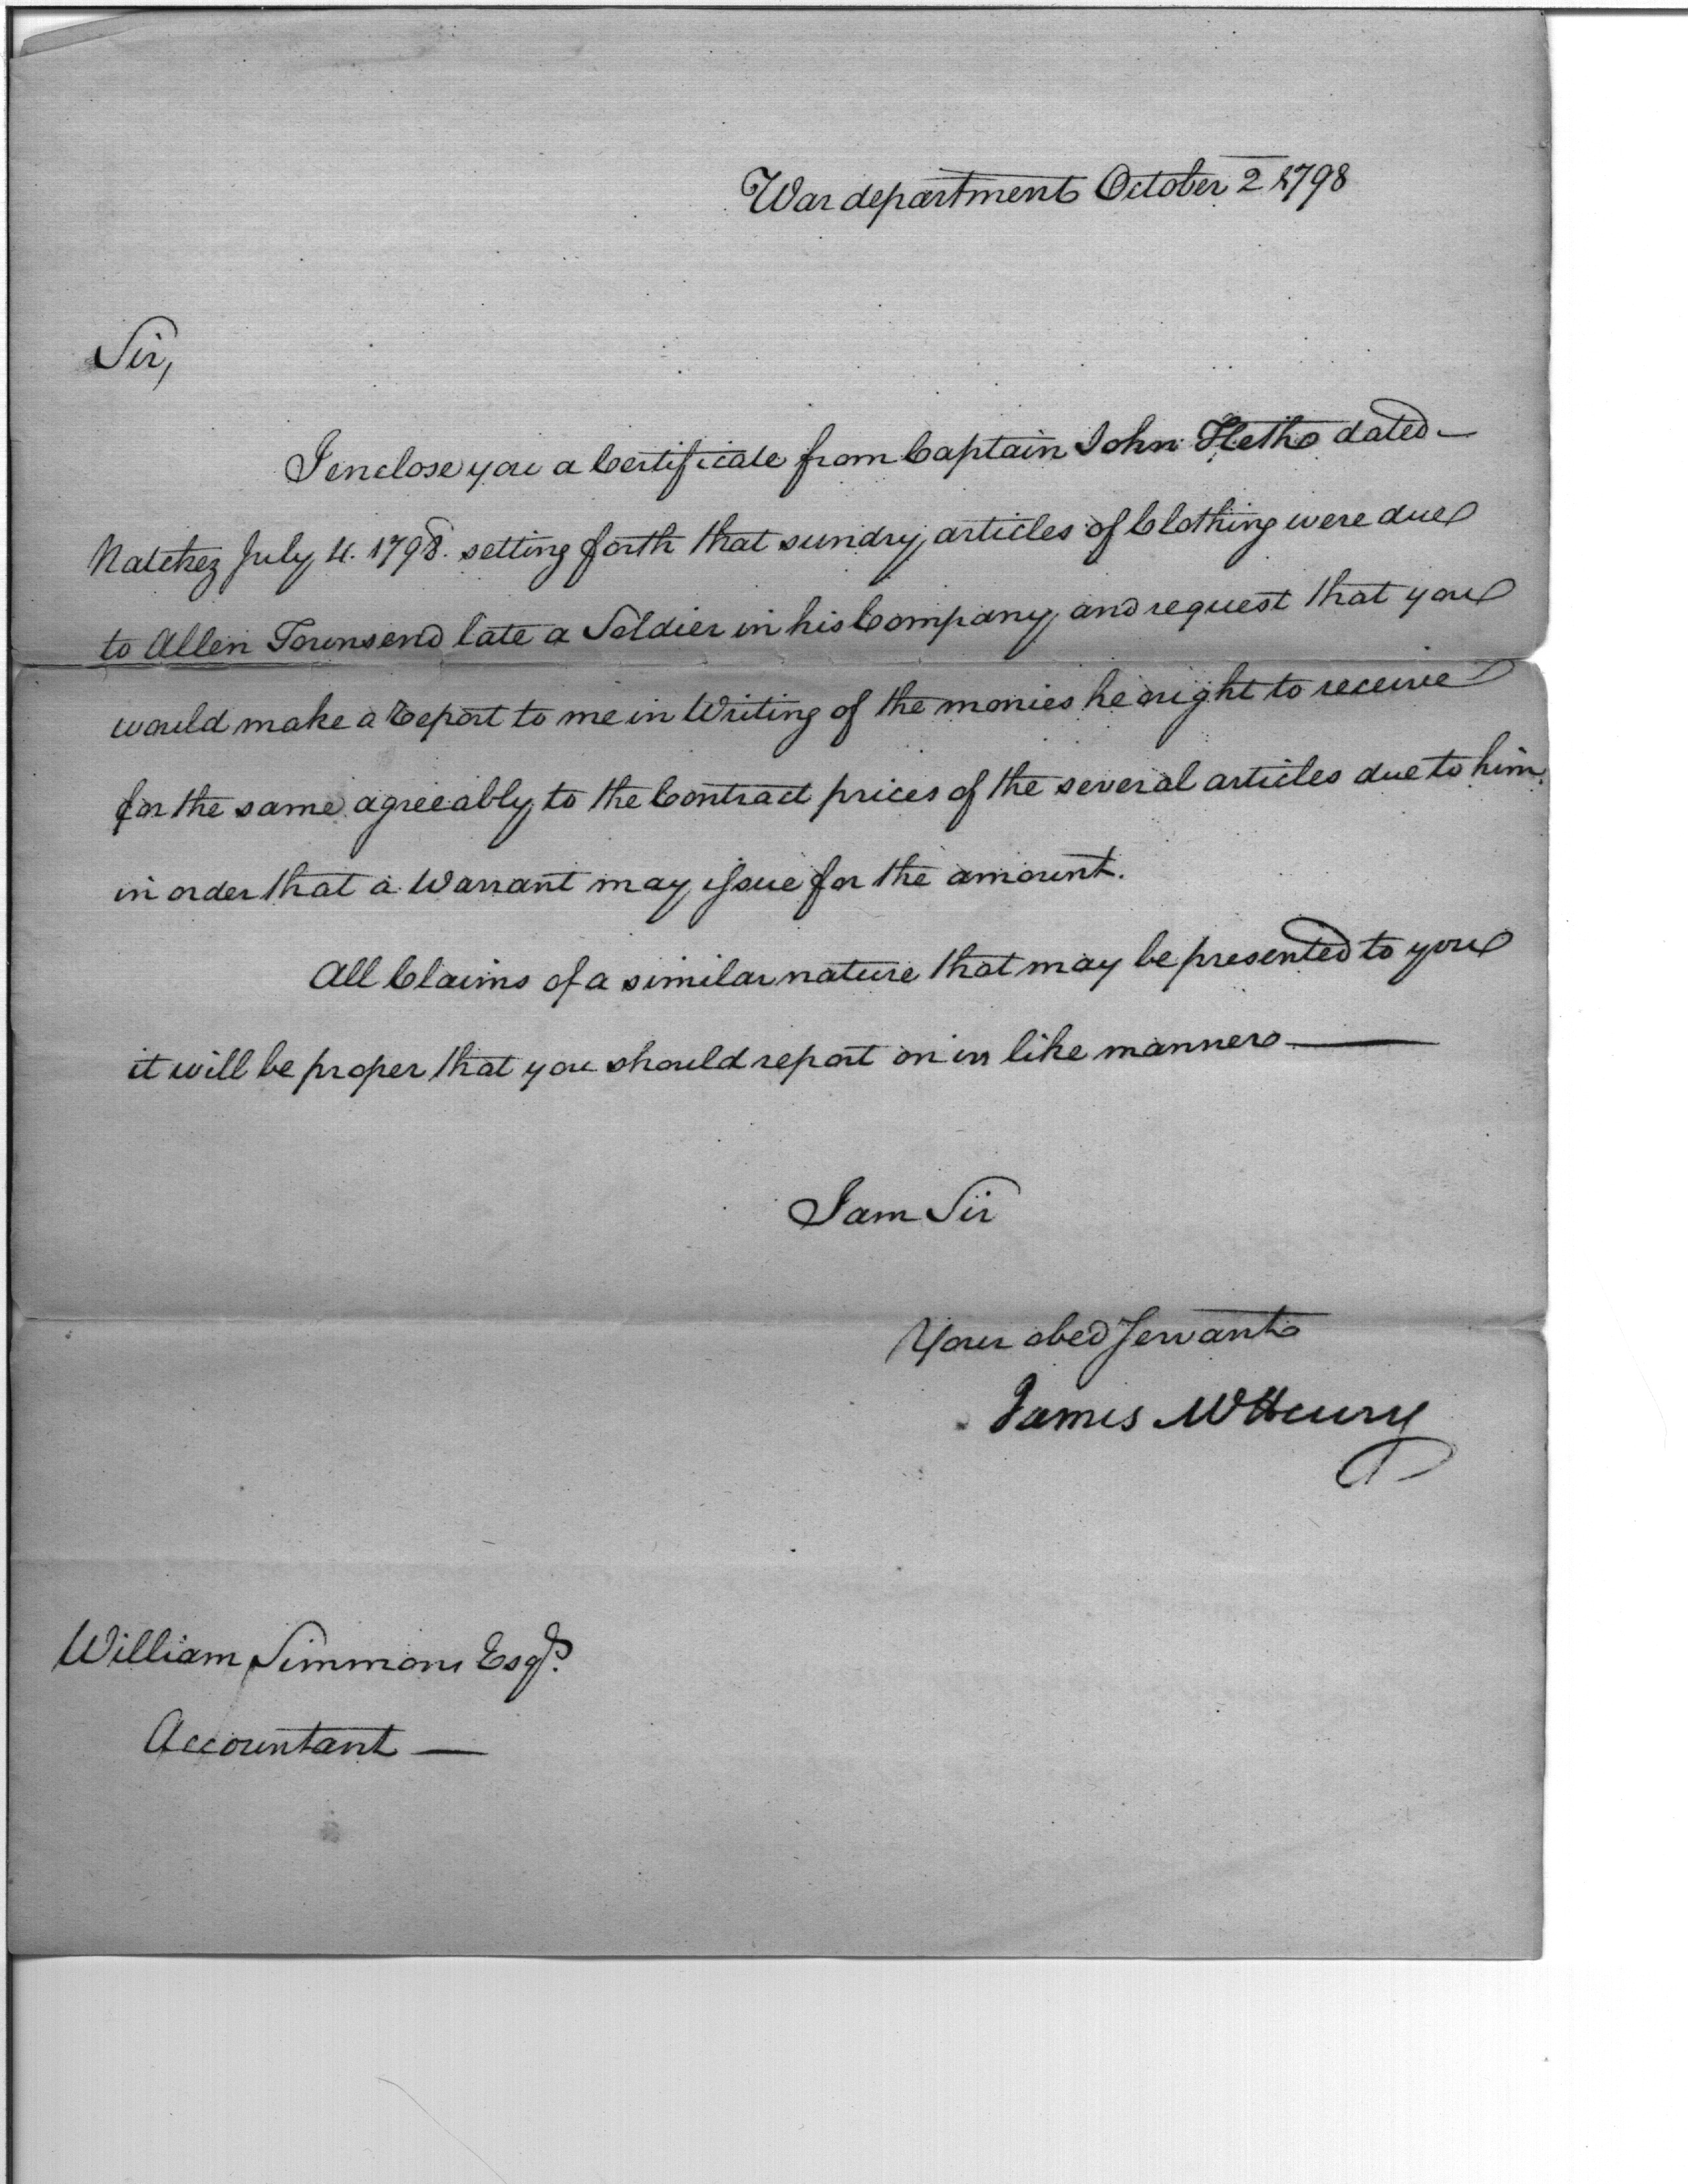 War department October 2 1798
Sir,
I enclose you a Certificate from Captain John Heth dated
Natchez July 4. 1798. setting forth that sundry articles of Clothing were due
to Allen Townsend late a Soldier in his Company, and request that you
would make a Report to me in Writing of the monies he ought to receive
for the same agreeably to the Contract prices of the several articles due to him.
in order that a Warrant may issue for the amount.
All Claims of a similar nature that may be presented to you
it will be proper that you should report on in like manner
I am Sir
Your obed servant
James McHenry
William Simmons Esqr.
Accountant